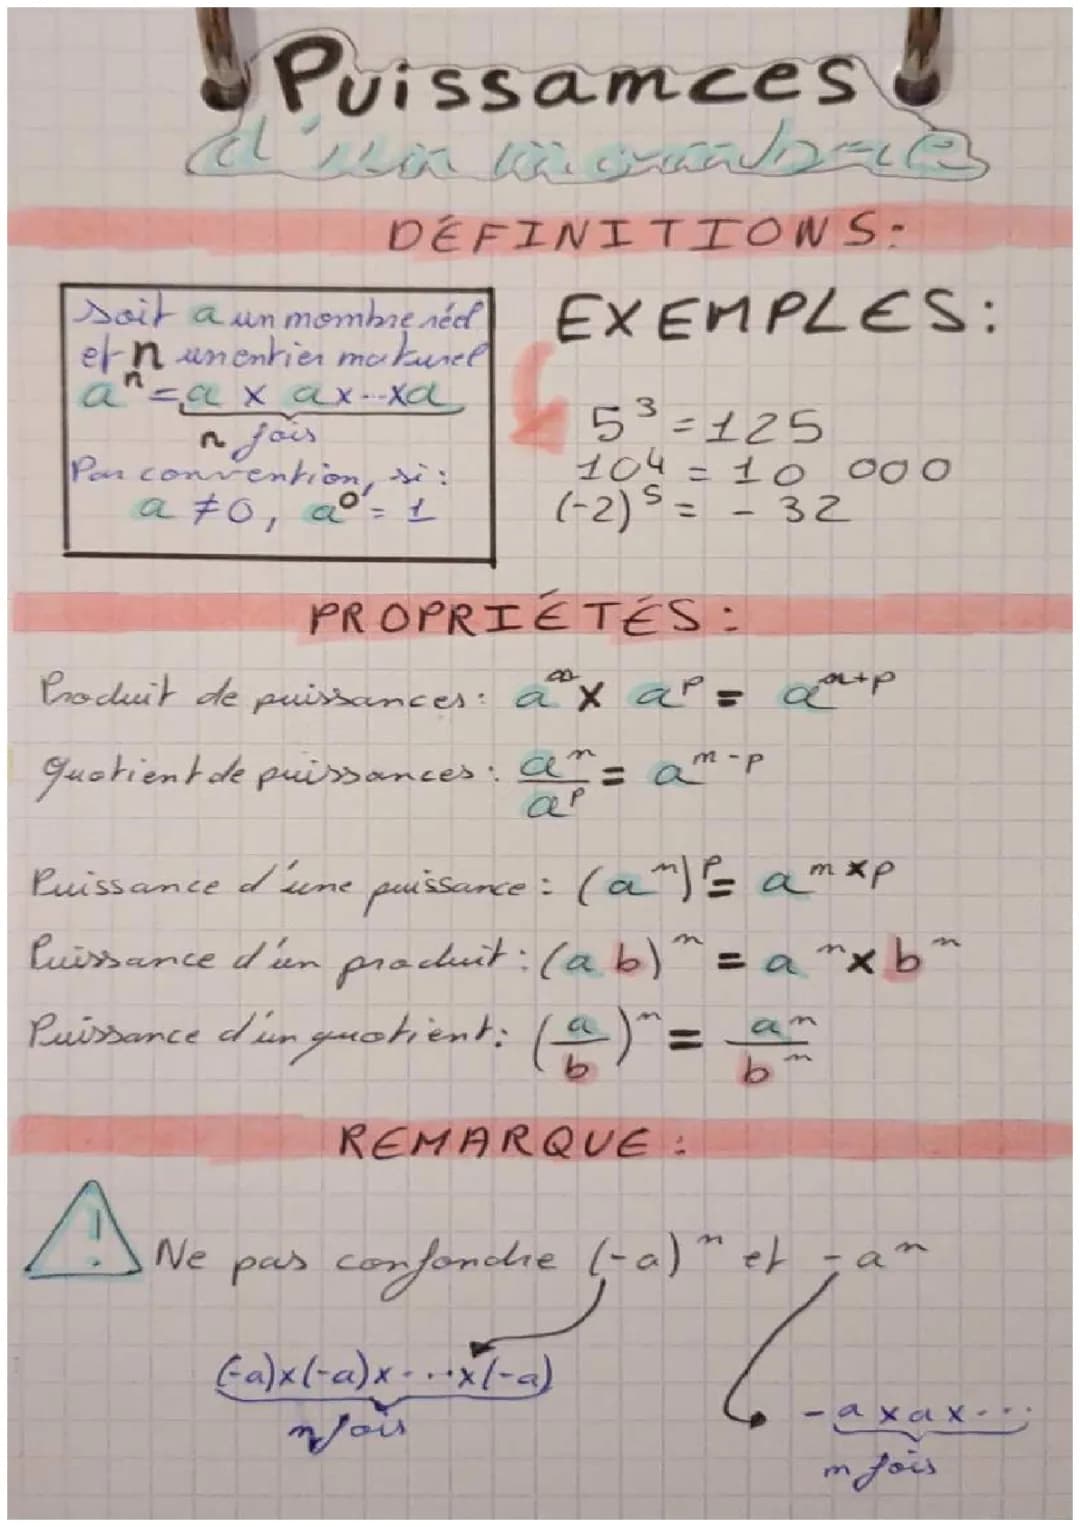 Puissances
d'un nombre
DÉFINITIONS:
Soit a un nombre réel
et n un entier naturel
aⁿ = a x a x...x a
n fois
Par convention, si :
a ≠ 0, a⁰ = 1
EXEMPLES:
5³ = 125
10⁴ = 10 000
(-2)⁵ = - 32
PROPRIÉTÉS:
Produit de puissances: aⁿ x aᵖ = aⁿ⁺ᵖ
Quotient de puissances: aⁿ/aᵖ = aⁿ⁻ᵖ
Puissance d'une puissance : (aⁿ)ᵖ = a^(n x p)
Puissance d'un produit : (ab)ⁿ = aⁿ x bⁿ
Puissance d'un quotient : (a/b)ⁿ = aⁿ/bⁿ
REMARQUE :
! Ne pas confondre (-a)ⁿ et -aⁿ
(-a)x(-a)x....x(-a)
n fois
-a x a x...
n fois